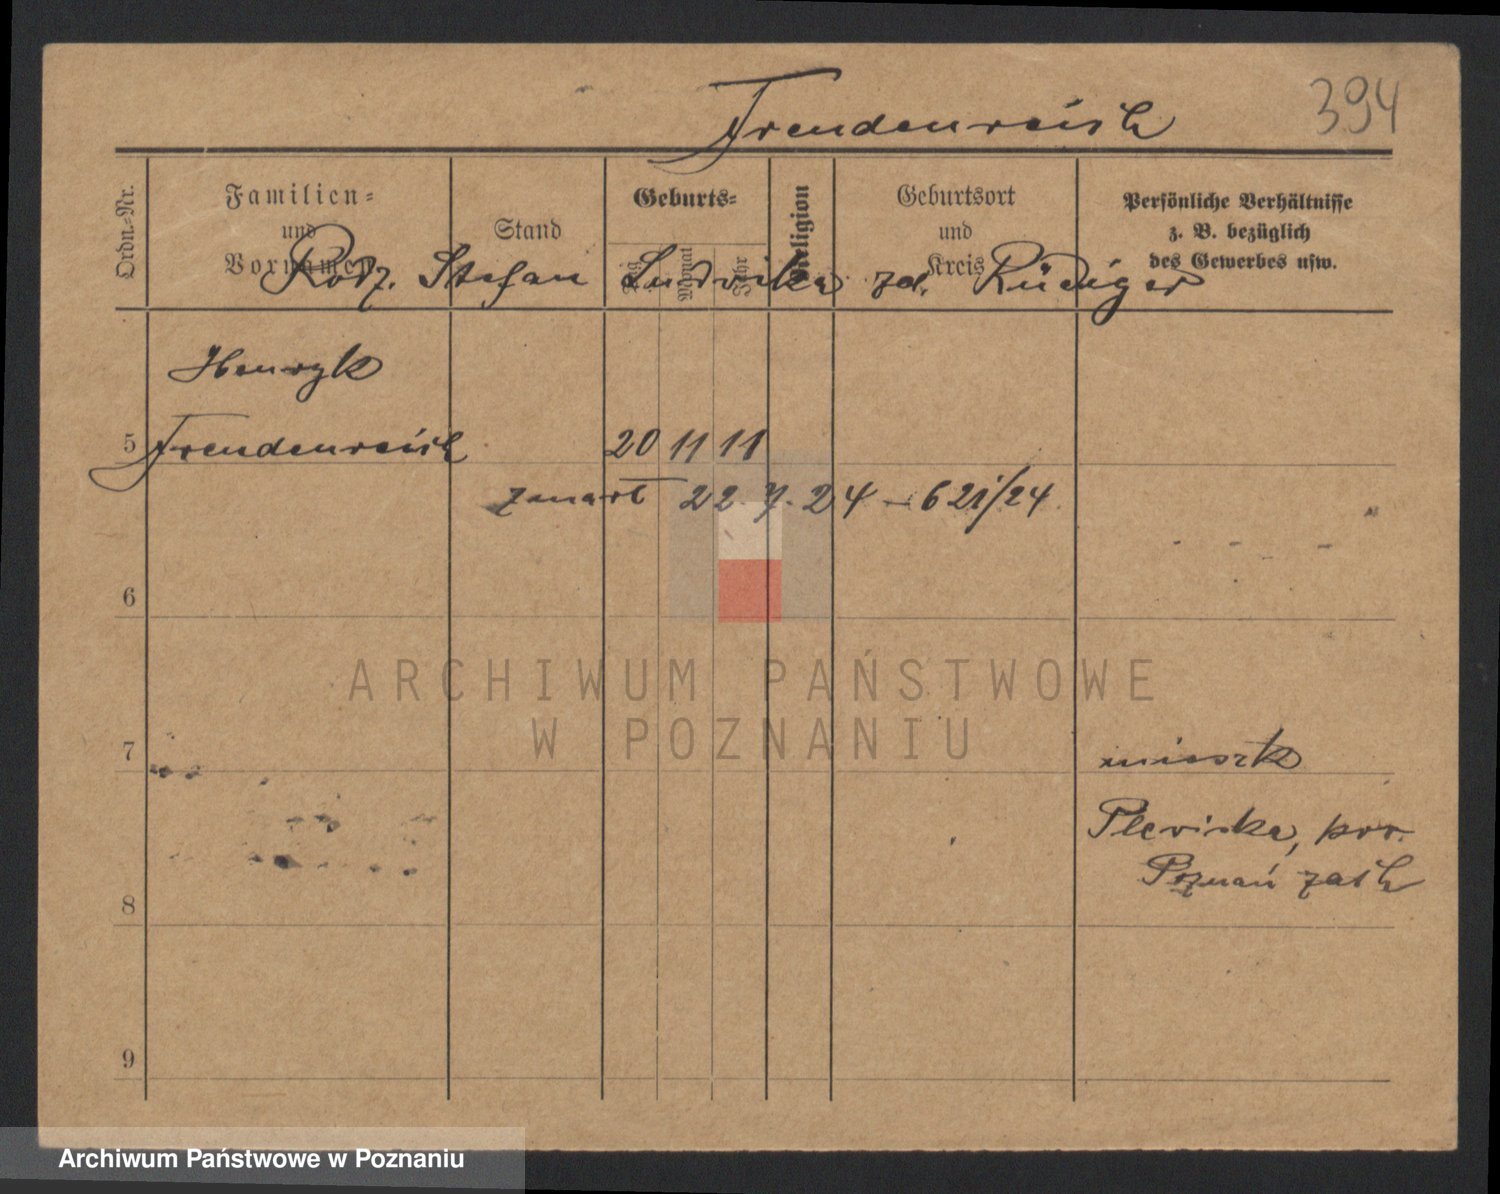 394
Freudenreich
Ordn.-Nr.
Familien-
und
Vornamen
Stand
Geburts-
Tag
Monat
Jahr
Religion
Geburtsort
und
Kreis
Persönliche Verhältnisse
z. B. bezüglich
des Gewerbes usw.
Rodz. Stefan Ludwika zd. Rüdiger
Henryk
5 Freudenreich 20 11 11
zmarł 22.7.24 – 621/24
6
ARCHIWUM PAŃSTWOWE
W POZNANIU
7
mieszk
Plewiska, pow.
Poznań zach
8
9
Archiwum Państwowe w Poznaniu